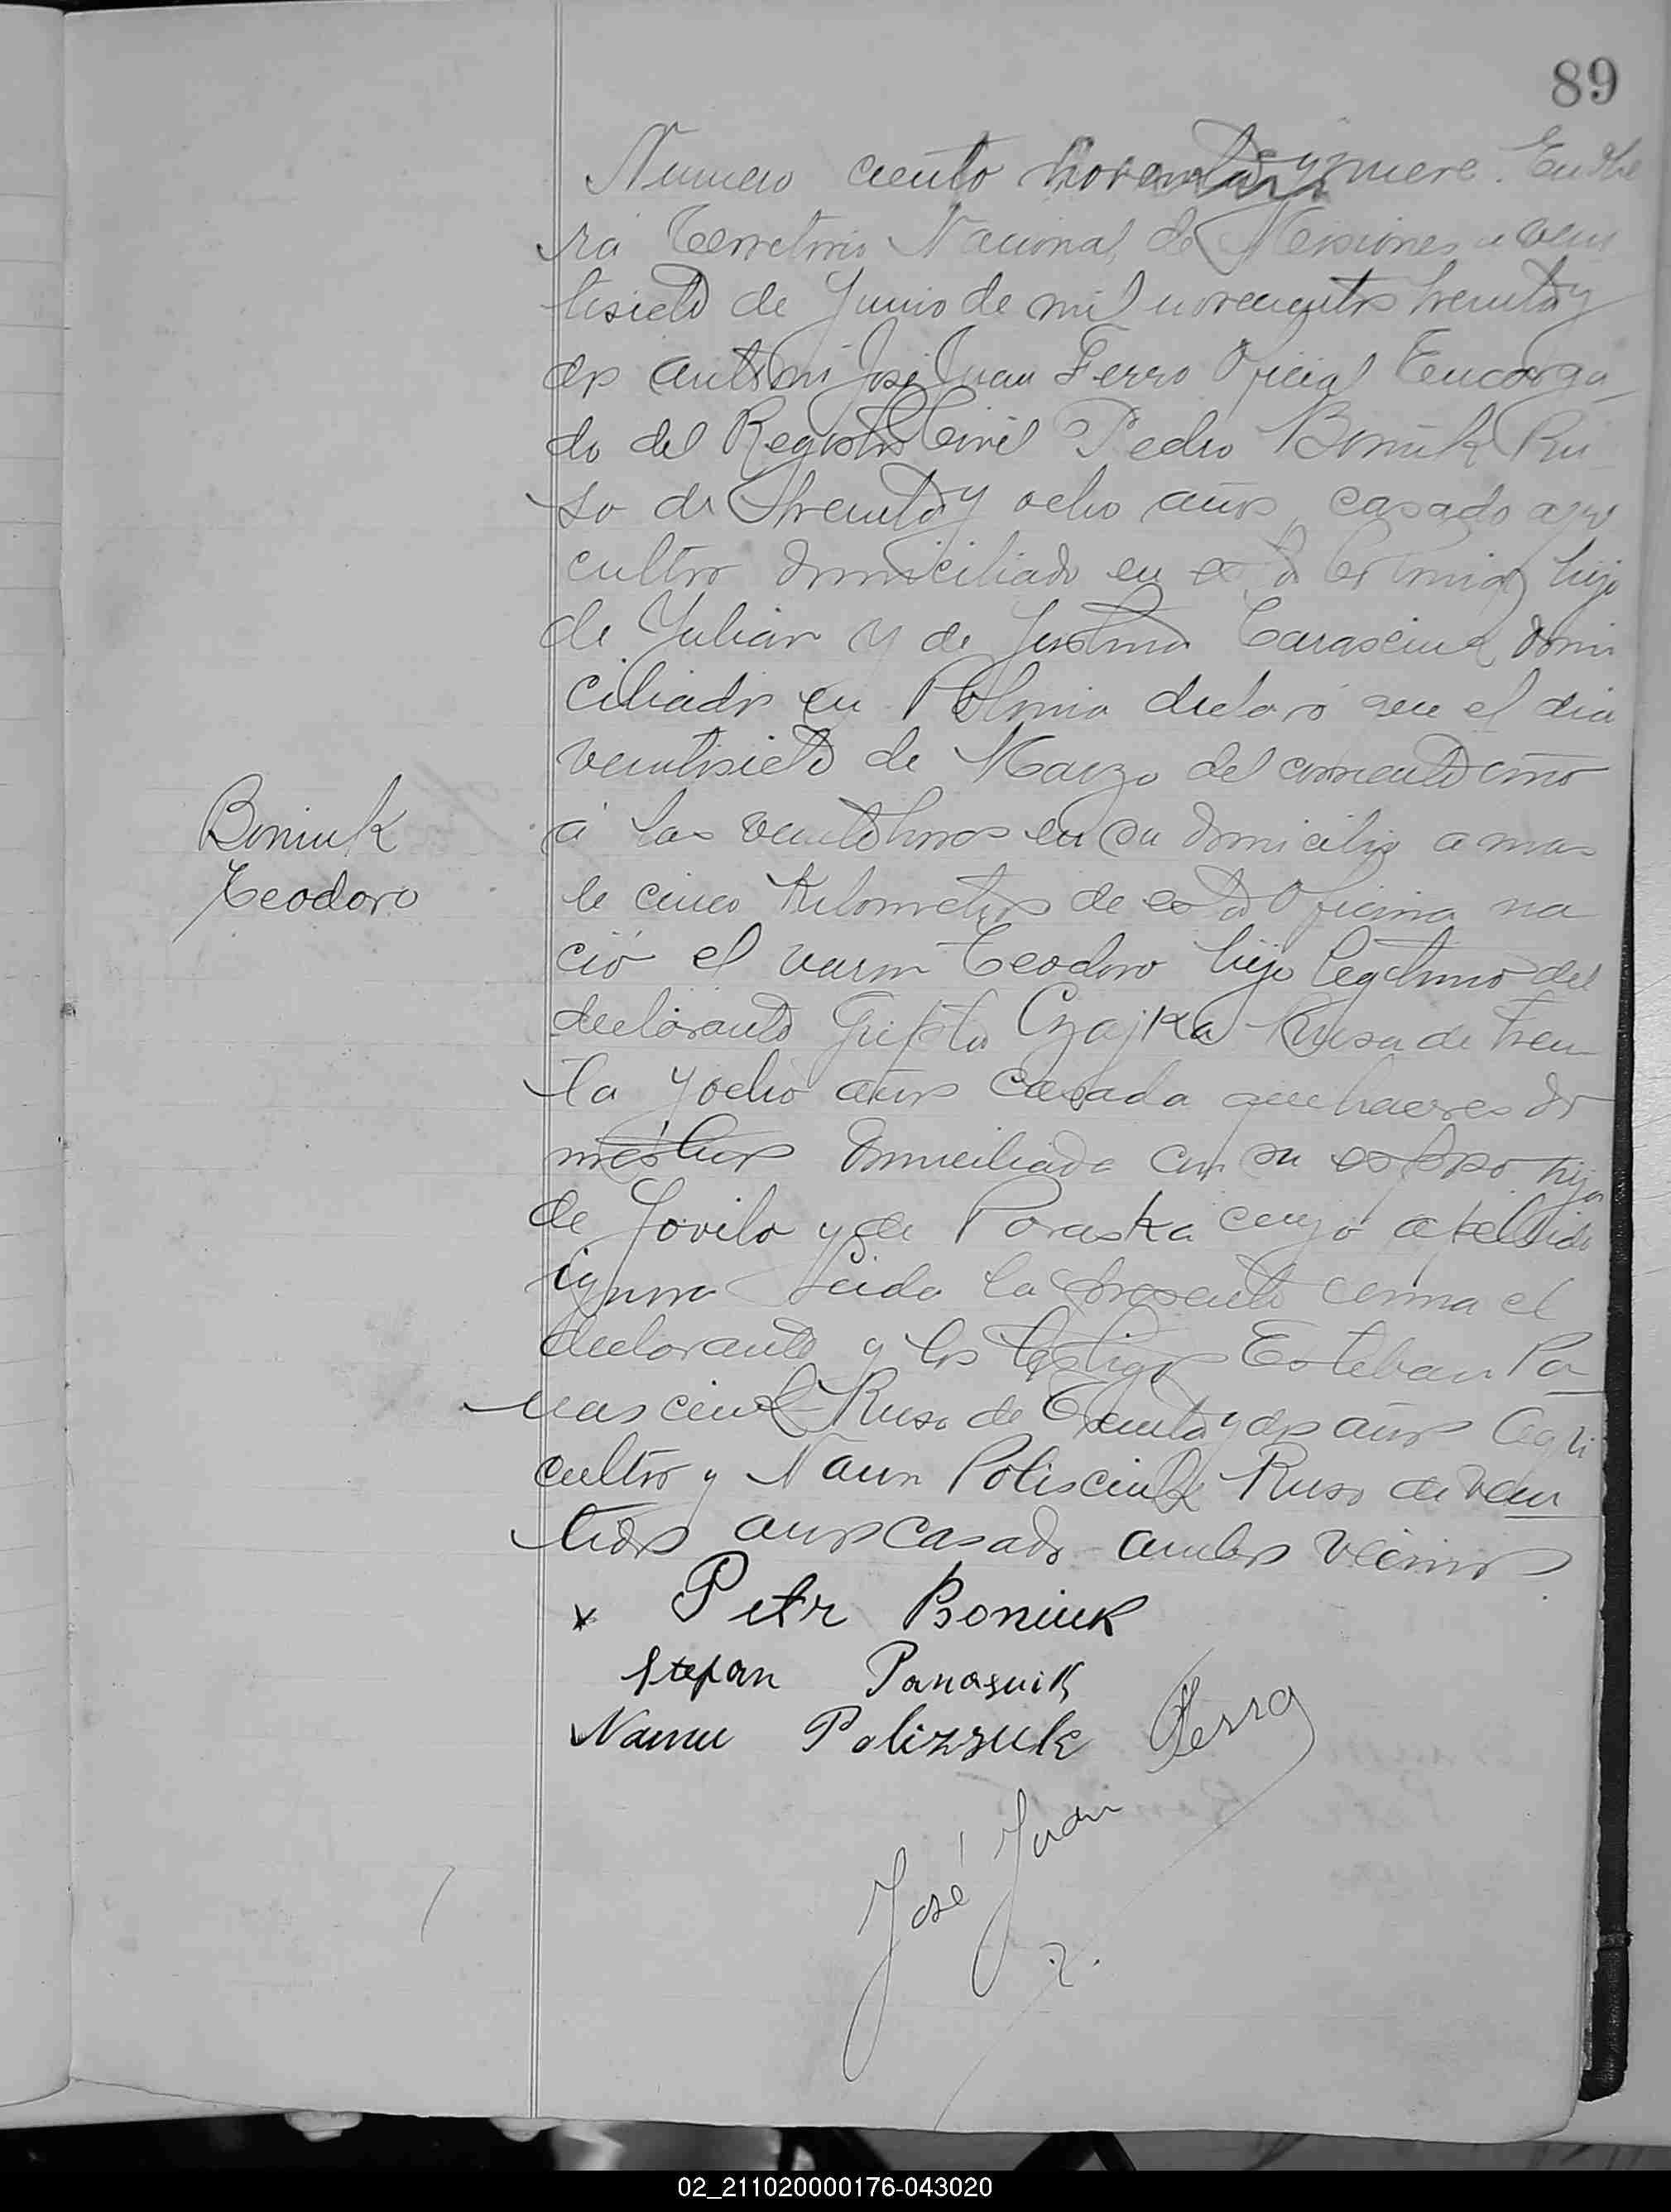 89
Numero ciento noventa y nueve. En Obe
ra Territorio Nacional de Misiones a vein
tisiete de Junio de mil novecientos treinta y
dos ante mi José Juan Ferro Oficial Encarga
do del Registro Civil Pedro Boniuk Ru
so de treinta y ocho años, casado agri
cultor domiciliado en esta Colonia hijo
de Julian y de Justina Tarasciuk domi
ciliados en Polonia declaró que el dia
veintisiete de Marzo del corriente año
Boniuk
Teodoro
a las veinte horas en su domicilio a mas
de cinco Kilometros de esta Oficina na
ció el varon Teodoro hijo legitimo del
declarante Czajka Rusa de trein
ta y ocho años casada quehaceres do
mesticos domiciliada con su esposo hija
de y de Paraska cuyo apellido
ignora Leida la presente el
declarante y los testigos Esteban Pa
nasciuk Ruso de treinta y dos años Agri
cultor y Naun Polisciuk Ruso de vein
tidos años casado ambos vecinos
x Petr Boniuk
Stepan Panasuik
Naum Polizzuk Ferro
José Juan
02_211020000176-043020